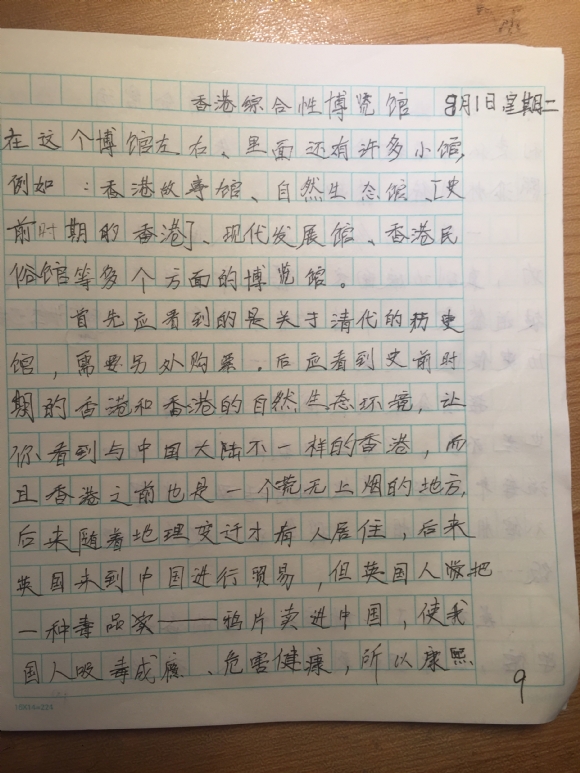 香港综合性博览馆 9月1日星期二
在这个博馆左右、里面还有许多小馆,
例如:香港故事馆、自然生态馆、[史
前时期的香港]、现代发展馆、香港民
俗馆等多个方面的博览馆。
首先应看到的是关于清代的历史
馆,需要另外购票。后应看到史前时
期的香港和香港的自然生态环境,让
你看到与中国大陆不一样的香港,而
且香港之前也是一个荒无上烟的地方,
后来随着地理变迁才有人居住,后来
英国来到中国进行贸易,但英国人把
一种毒品——鸦片卖进中国,使我
国人吸毒成瘾、危害健康,所以康熙
9
15X15=225